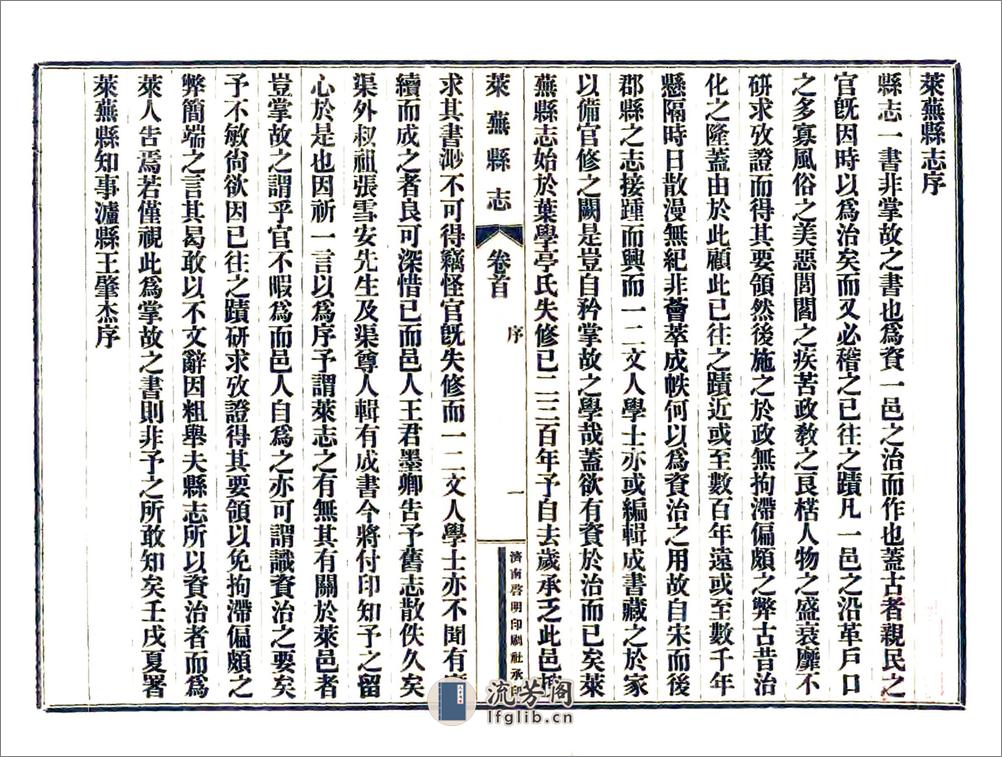 萊蕪縣志序
縣志一書非掌故之書也爲資一邑之治而作也蓋古者親民之
官既因時以爲治矣而又必稽之已往之蹟凡一邑之沿革戶口
之多寡風俗之美惡閭閻之疾苦政敎之良楛人物之盛衰靡不
硏求攷證而得其要領然後施之於政無拘滯偏頗之弊古昔治
化之隆蓋由於此顧此已往之蹟近或至數百年遠或至數千年
懸隔時日散漫無紀非薈萃成帙何以爲資治之用故自宋而後
郡縣之志接踵而興而一二文人學士亦或編輯成書藏之於家
以備官修之闕是豈自矜掌故之學哉蓋欲有資於治而已矣萊
蕪縣志始於葉學亭氏失修已二三百年予自去歲承乏此邑
萊蕪縣志 卷首 序 一 濟南啓明印刷社承印
求其書渺不可得竊怪官既失修而一二文人學士亦不聞有
續而成之者良可深惜已而邑人王君墨卿告予舊志散佚久矣
渠外叔祖張雪安先生及渠尊人輯有成書今將付印知予之留
心於是也因祈一言以爲序予謂萊志之有無其有關於萊邑者
豈掌故之謂乎官不暇爲而邑人自爲之亦可謂識資治之要矣
予不敏尙欲因已往之蹟硏求攷證得其要領以免拘滯偏頗之
弊簡端之言其曷敢以不文辭因粗舉夫縣志所以資治者而爲
萊人告焉若僅視此爲掌故之書則非予之所敢知矣壬戌夏署
萊蕪縣知事瀘縣王肇杰序
流芳阁
lfglib.cn